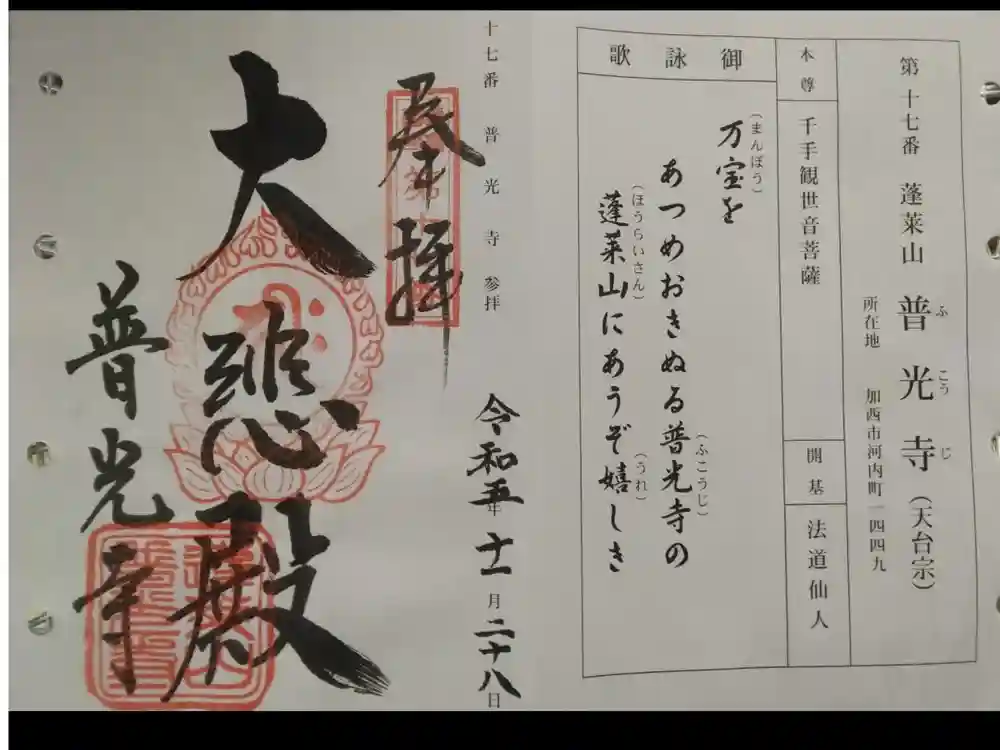 第十七番 蓬莱山 普光寺（天台宗）
ふ こう じ
所在地 加西市河内町一四四九
本尊 千手観世音菩薩
開基 法道仙人
御詠歌
（まんぽう）
万宝を
あつめおきぬる普光寺の
（ふこうじ）
蓬莱山にあうぞ嬉しき
（ほうらいさん）（うれ）
十七番 普光寺参拝
令和五年十一月二十八日
奉拝
大悲殿
普光寺